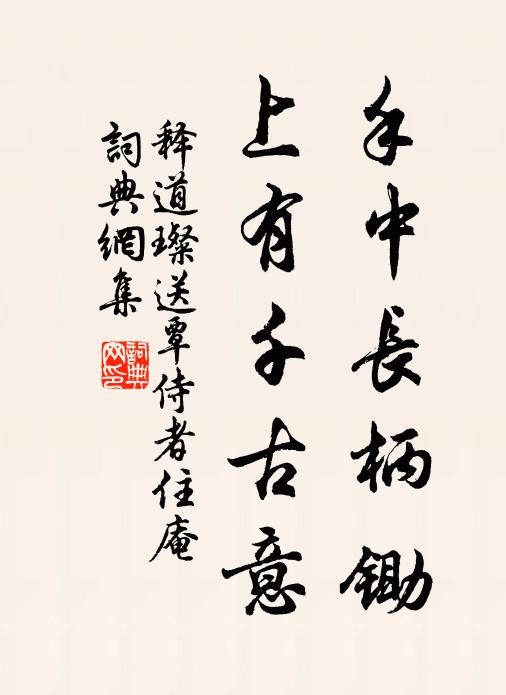 手中長柄鋤
上有千古意
释道璨送覃侍者住庵
詞典網集
詞典网印